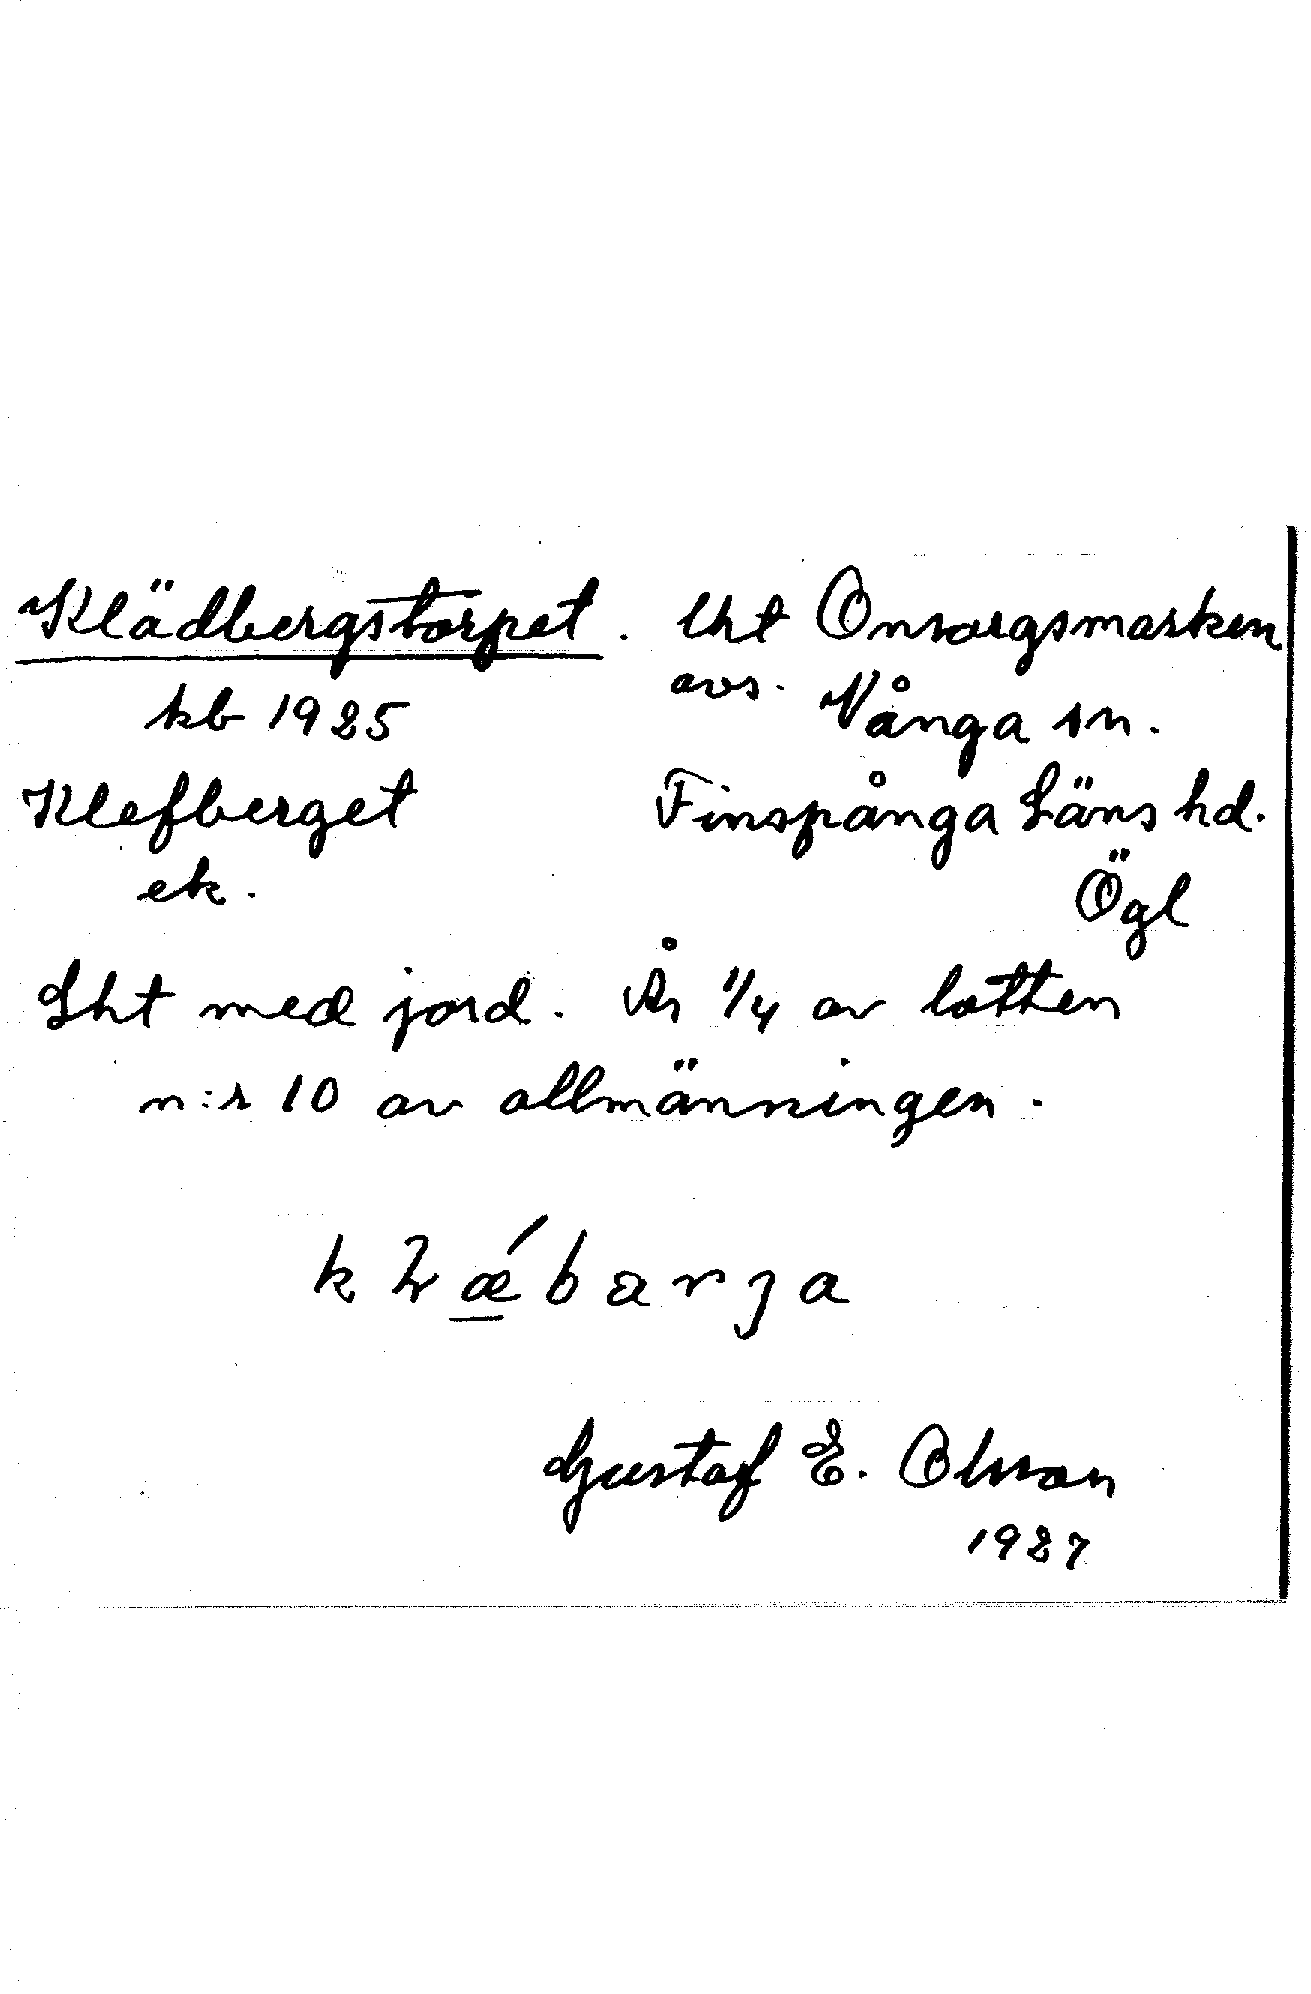 Klädbergstorpet. lht Onsorgsmarken
avs.
kb 1925 Vånga sn.
Klefberget Finspånga Läns hd.
ek. Ögl
Lht med jord. Är 1/4 av lotten
n:r 10 av allmänningen.
Gustaf E. Olsson
1927